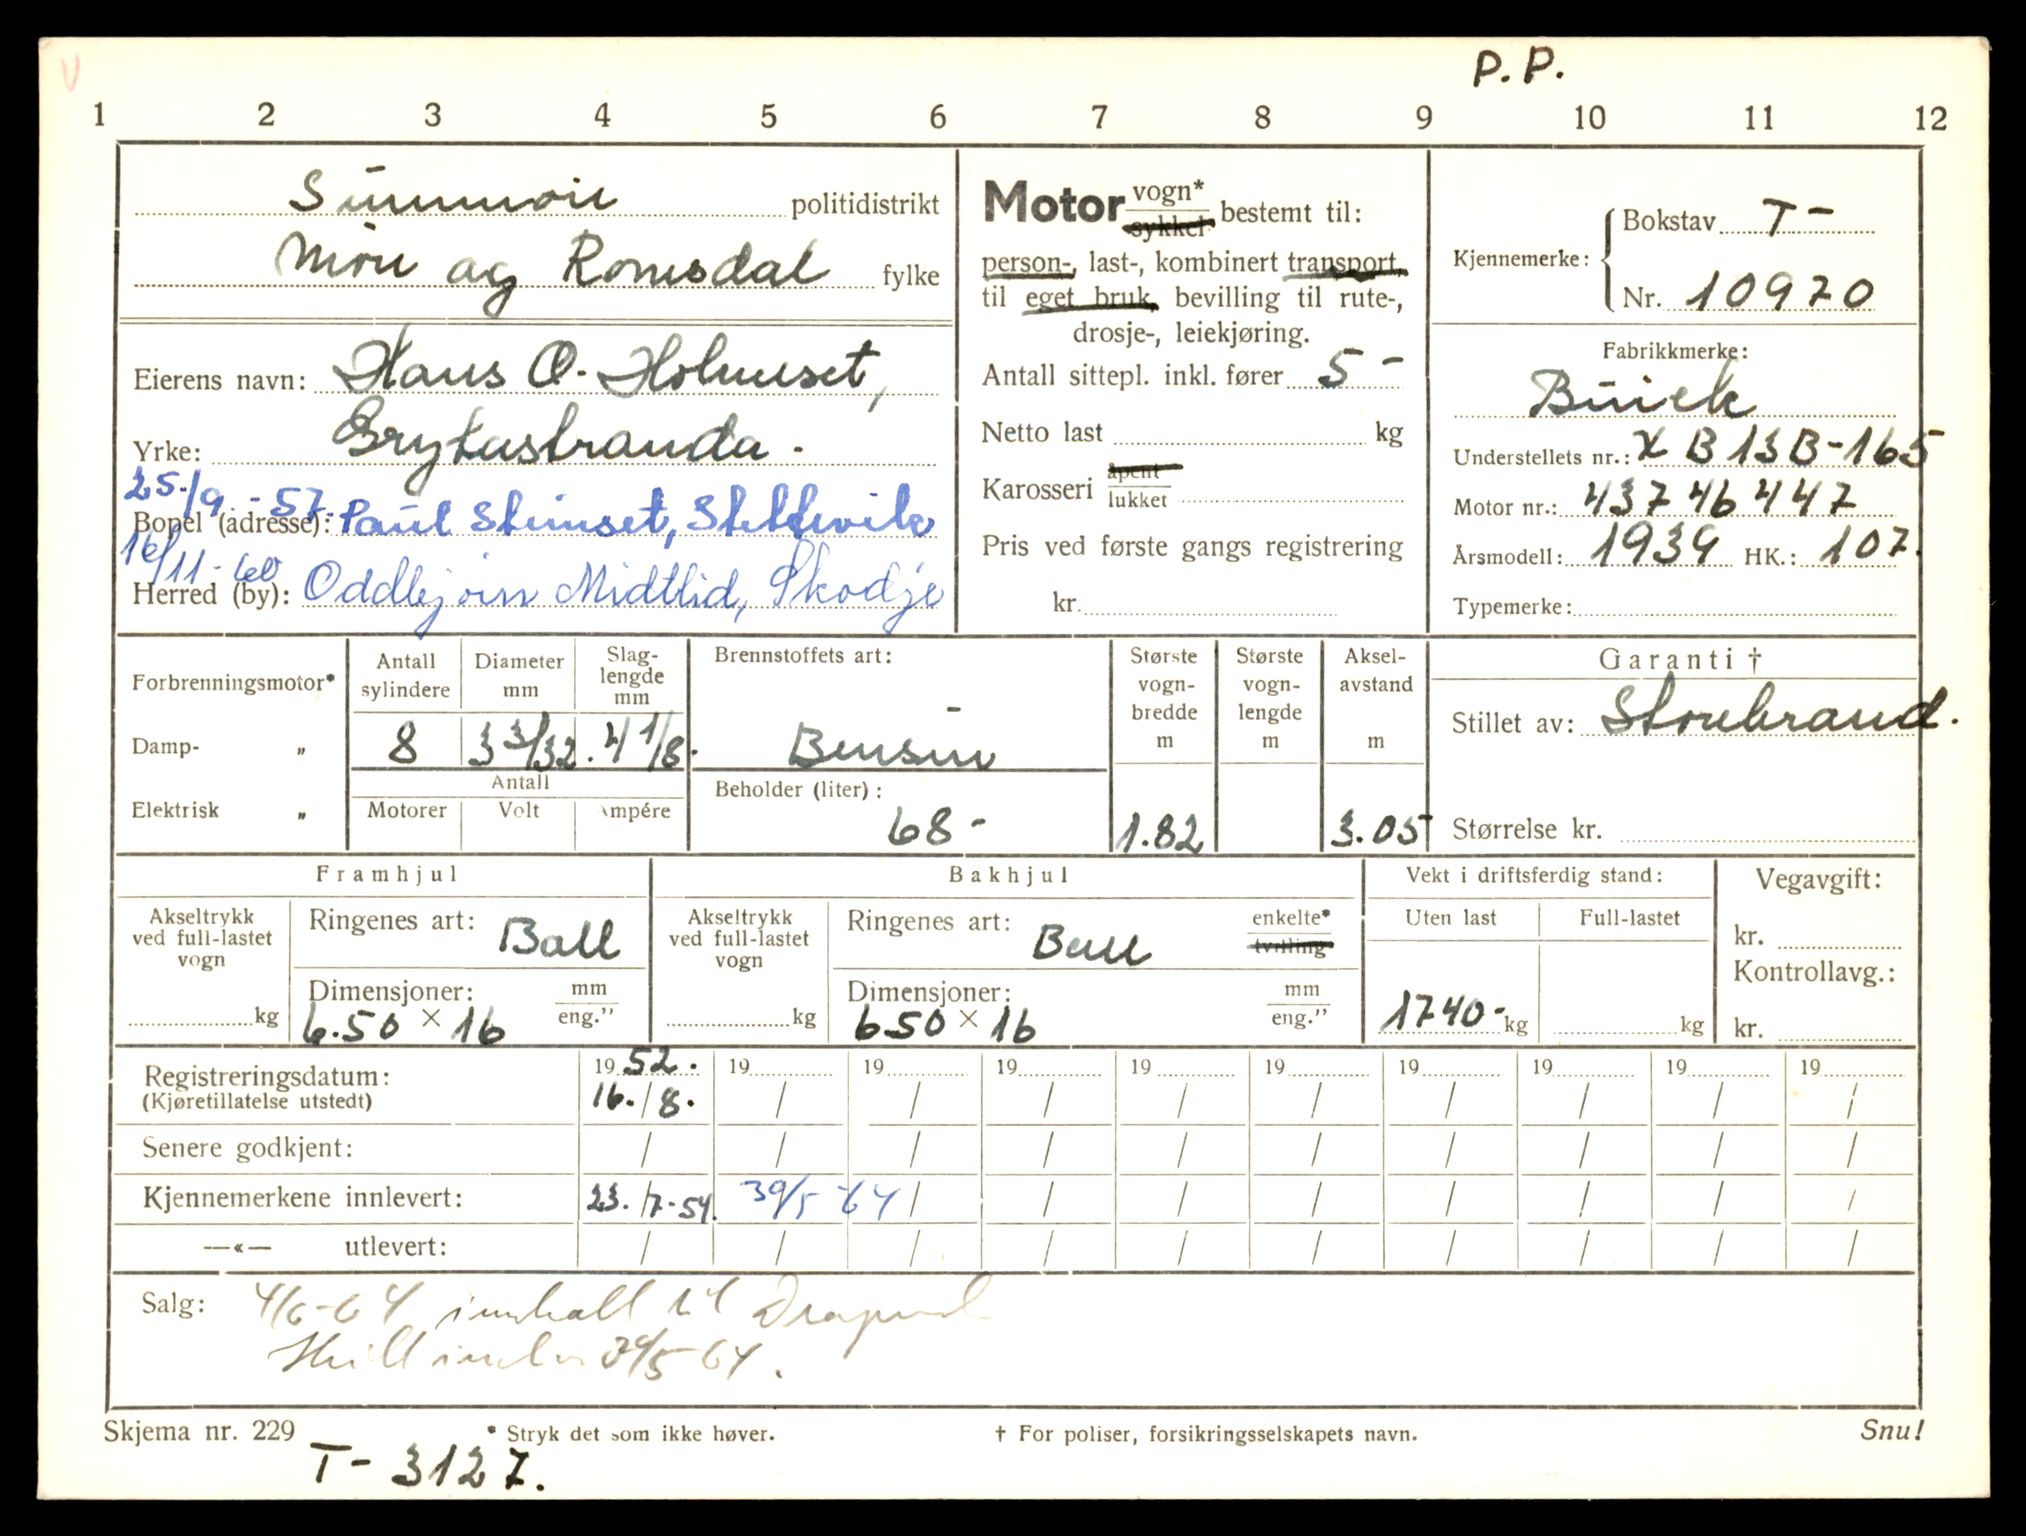 V
P.P.
1 2 3 4 5 6 7 8 9 10 11 12
Sunnmøre politidistrikt
Møre og Romsdal fylke
Eierens navn: Hans O. Holmeset,
Yrke: Grytastranda.
25./9.-57.
Bopel (adresse): Paul Stimset,
16/11-60
Herred (by): Oddbjørn Midtlid, Skodje
Motor vogn* sykkel bestemt til:
person-, last-, kombinert transport,
til eget bruk, bevilling til rute-,
drosje-, leiekjøring.
Antall sittepl. inkl. fører 5 -
Netto last kg
Karosseri åpent lukket
Pris ved første gangs registrering
kr.
Kjennemerke: Bokstav T-
Nr. 10970
Fabrikkmerke:
Buick
Understellets nr.: X B13B-165
Motor nr.: 43746447
Årsmodell: 1939 HK.: 107.
Typemerke:
Forbrenningsmotor*
Damp- "
Elektrisk "
Antall sylindere
8
Diameter mm
3 3/32.
Slag-
lengde
mm
4 1/8.
Antall
Motorer Volt Ampére
Brennstoffets art:
Bensin
Beholder (liter):
68-
Største
vogn-
bredde
m
1.82
Største
vogn-
lengde
m
Aksel-
avstand
m
3.05
Garanti †
Stillet av: Storebrand.
Størrelse kr.
Framhjul
Akseltrykk
ved full-lastet
vogn
kg
Ringenes art: Ball
Dimensjoner: mm eng."
6.50 × 16
Bakhjul
Akseltrykk
ved full-lastet
vogn
kg
Ringenes art: Ball enkelte* tvilling
Dimensjoner: mm eng."
650 × 16
Vekt i driftsferdig stand:
Uten last Full-lastet
1740- kg kg
Vegavgift:
kr.
Kontrollavg.:
kr.
Registreringsdatum: 1952. 19 19 19 19 19 19 19 19 19
(Kjøretillatelse utstedt) 16./8. / / / / / / / / /
Senere godkjent: / / / / / / / / / /
Kjennemerkene innlevert: 23./7-54. 30/5 64 / / / / / / / /
—«— utlevert: / / / / / / / / / /
Salg: 4/6-64 innkalt til
Skilt 30/5 64.
Skjema nr. 229
* Stryk det som ikke høver.
† For poliser, forsikringsselskapets navn.
Snu!
T- 3127.